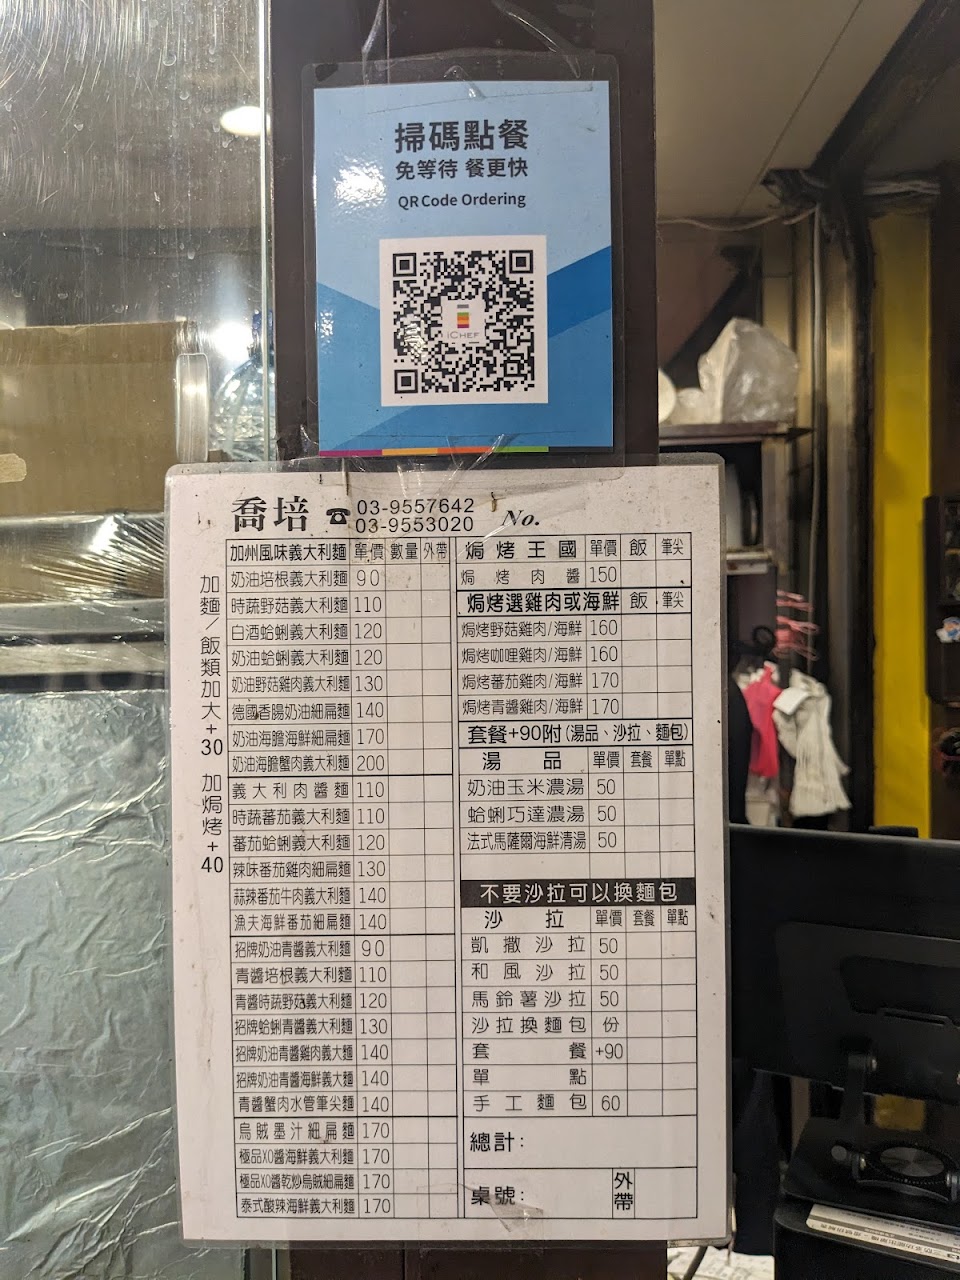 掃碼點餐
免等待 餐更快
QR Code Ordering
iCHEF
喬培 ☎ 03-9557642
03-9553020
No.
加麵/飯類加大+30 加焗烤+40
加州風味義大利麵 單價 數量 外帶
奶油培根義大利麵 90
時蔬野菇義大利麵 110
白酒蛤蜊義大利麵 120
奶油蛤蜊義大利麵 120
奶油野菇雞肉義大利麵 130
德國香腸奶油細扁麵 140
奶油海膽海鮮細扁麵 170
奶油海膽蟹肉義大利麵 200
義大利肉醬麵 110
時蔬蕃茄義大利麵 110
蕃茄蛤蜊義大利麵 120
辣味番茄雞肉細扁麵 130
蒜辣番茄牛肉義大利麵 140
漁夫海鮮番茄細扁麵 140
招牌奶油青醬義大利麵 90
青醬培根義大利麵 110
青醬時蔬野菇義大利麵 120
招牌蛤蜊青醬義大利麵 130
招牌奶油青醬雞肉義大麵 140
招牌奶油青醬海鮮義大麵 140
青醬蟹肉水管筆尖麵 140
烏賊墨汁細扁麵 170
極品XO醬海鮮義大利麵 170
極品XO醬乾炒烏賊細扁麵 170
泰式酸辣海鮮義大利麵 170
焗烤王國 單價 飯 筆尖
焗烤肉醬 150
焗烤選雞肉或海鮮 飯 筆尖
焗烤野菇雞肉/海鮮 160
焗烤咖哩雞肉/海鮮 160
焗烤蕃茄雞肉/海鮮 170
焗烤青醬雞肉/海鮮 170
套餐+90附(湯品、沙拉、麵包)
湯品 單價 套餐 單點
奶油玉米濃湯 50
蛤蜊巧達濃湯 50
法式馬薩爾海鮮清湯 50
不要沙拉可以換麵包
沙拉 單價 套餐 單點
凱撒沙拉 50
和風沙拉 50
馬鈴薯沙拉 50
沙拉換麵包 份
套餐 +90
單點
手工麵包 60
總計:
桌號: 外帶